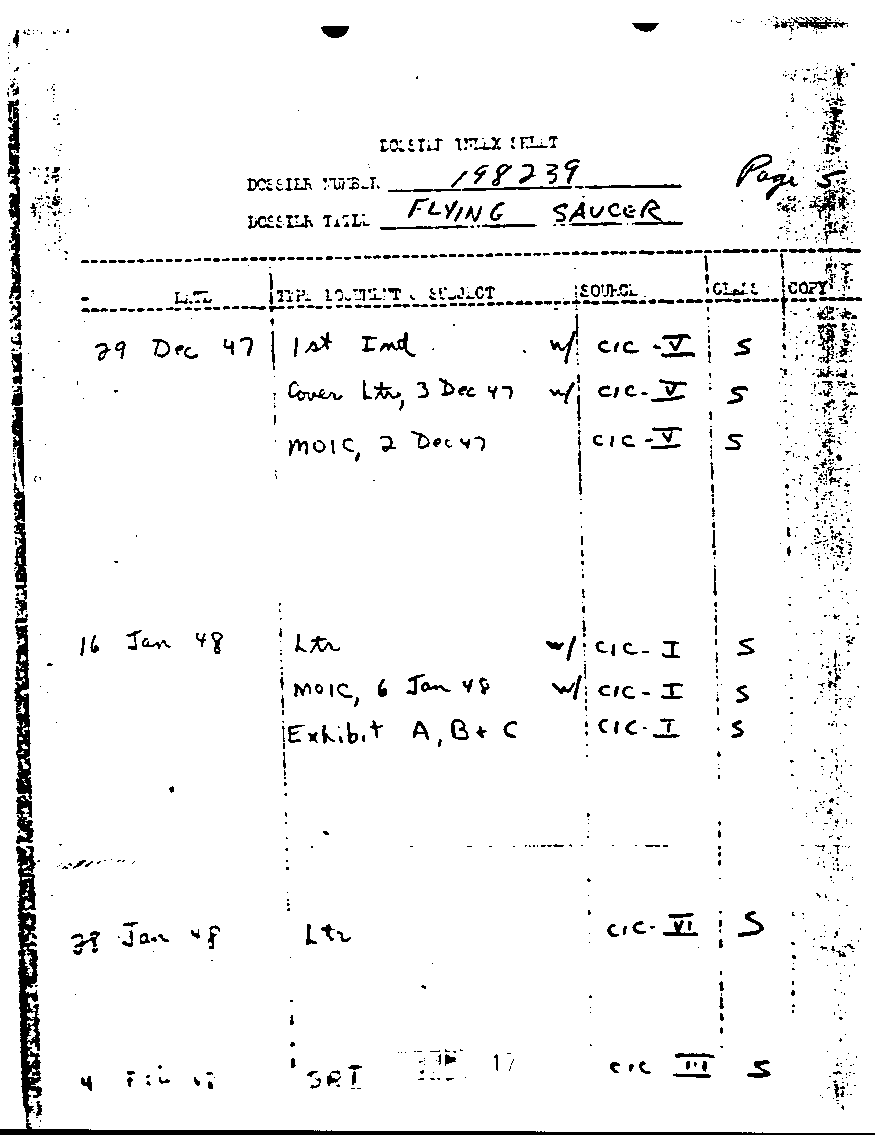 DOSSIER INDEX SHEET
DOSSIER NUMBER 198239 Page 5
DOSSIER TITLE FLYING SAUCER
DATE TYPE DOCUMENT & SUBJECT SOURCE CLASS COPY
29 Dec 47 1st Ind w/ CIC-V S
Cover Ltr, 3 Dec 47 w/ CIC-V S
MOIC, 2 Dec 47 CIC-V S
16 Jan 48 Ltr w/ CIC-I S
MOIC, 6 Jan 48 w/ CIC-I S
Exhibit A, B + C CIC-I S
28 Jan 48 Ltr CIC-VI S
4 Feb 48 SRI 17 CIC III S